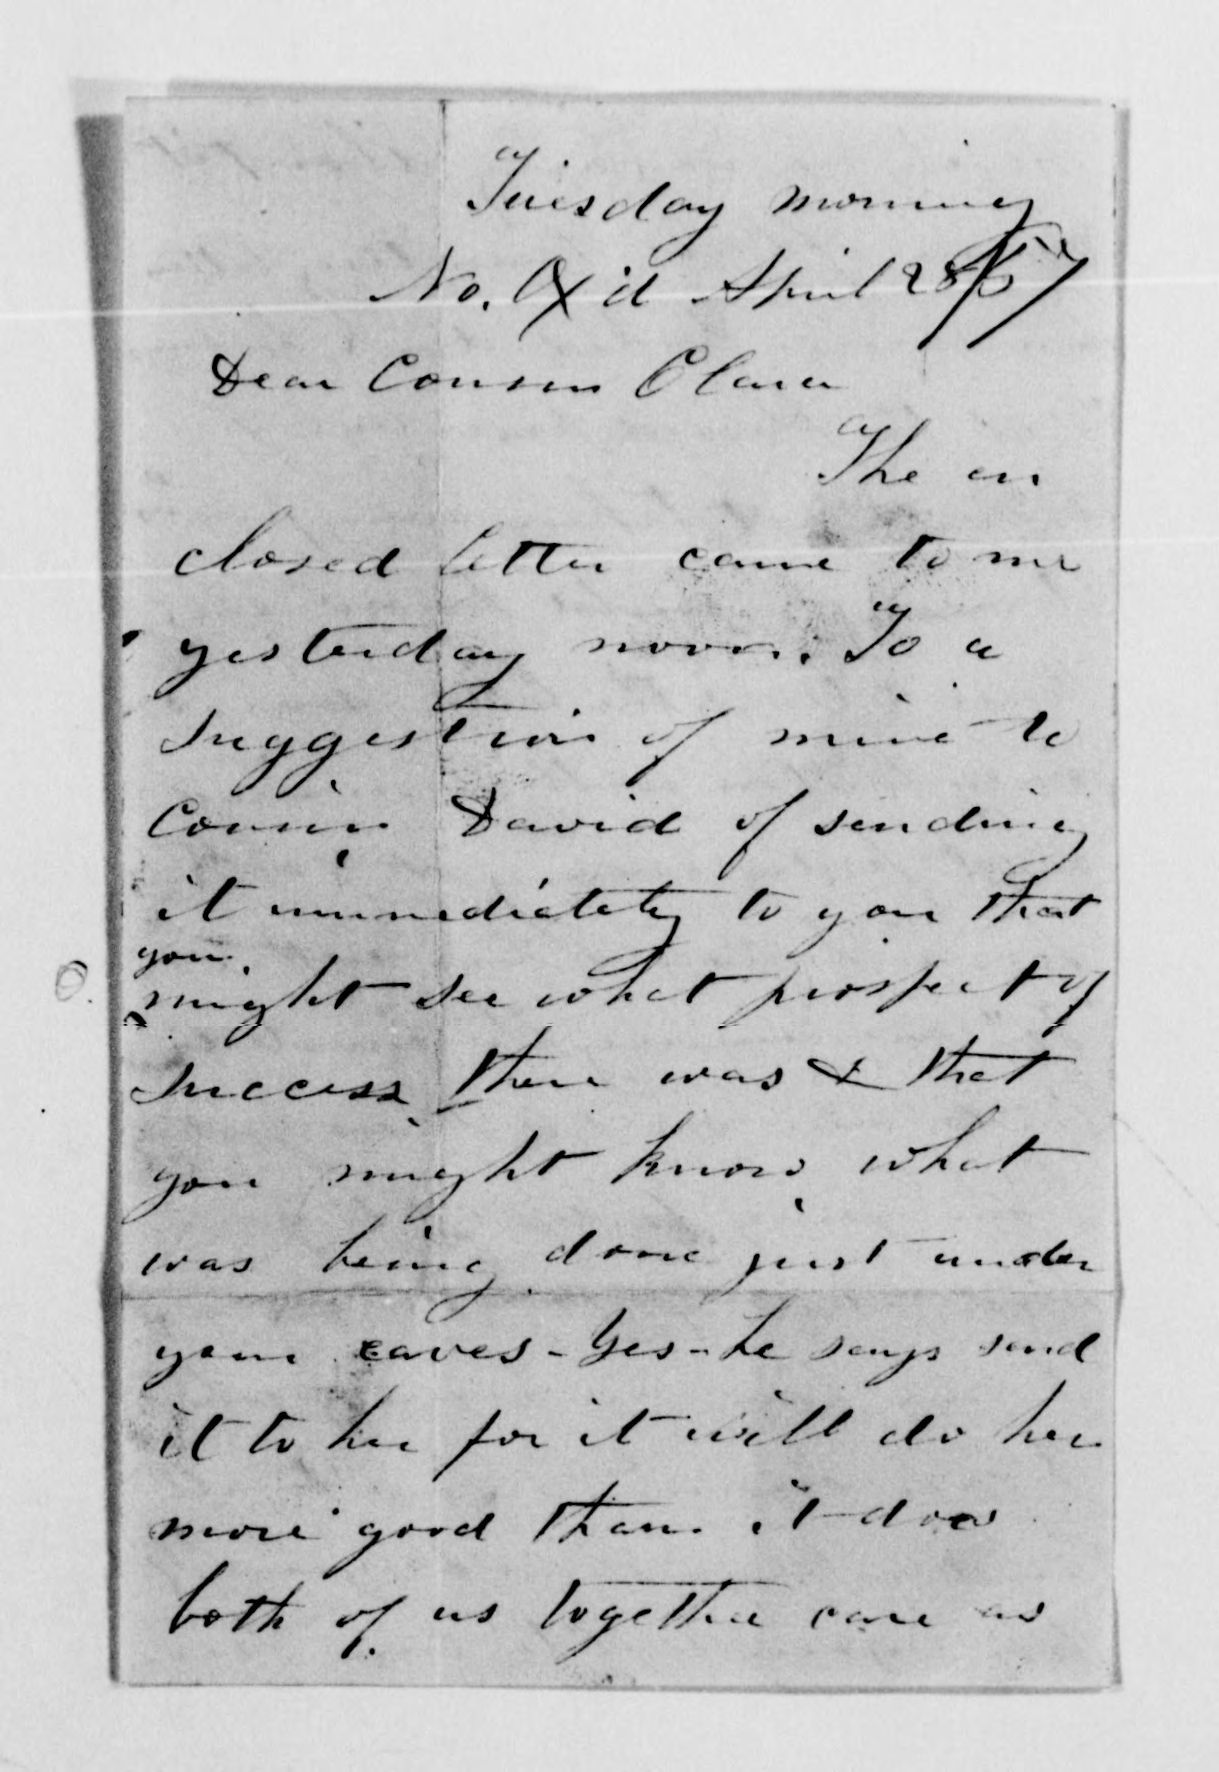 Tuesday morning
No. Oxd April 28/57
Dear Cousin Clara
The en
closed letter came to me
yesterday noon. To a
suggestion of mine to
Cousin David of sending
it immediately to you that
you
might see what prospect of
success there was & that
you might know what
was being done just under
your eaves - Yes - he says send
it to her for it will do her
more good than it does
both of us together care as